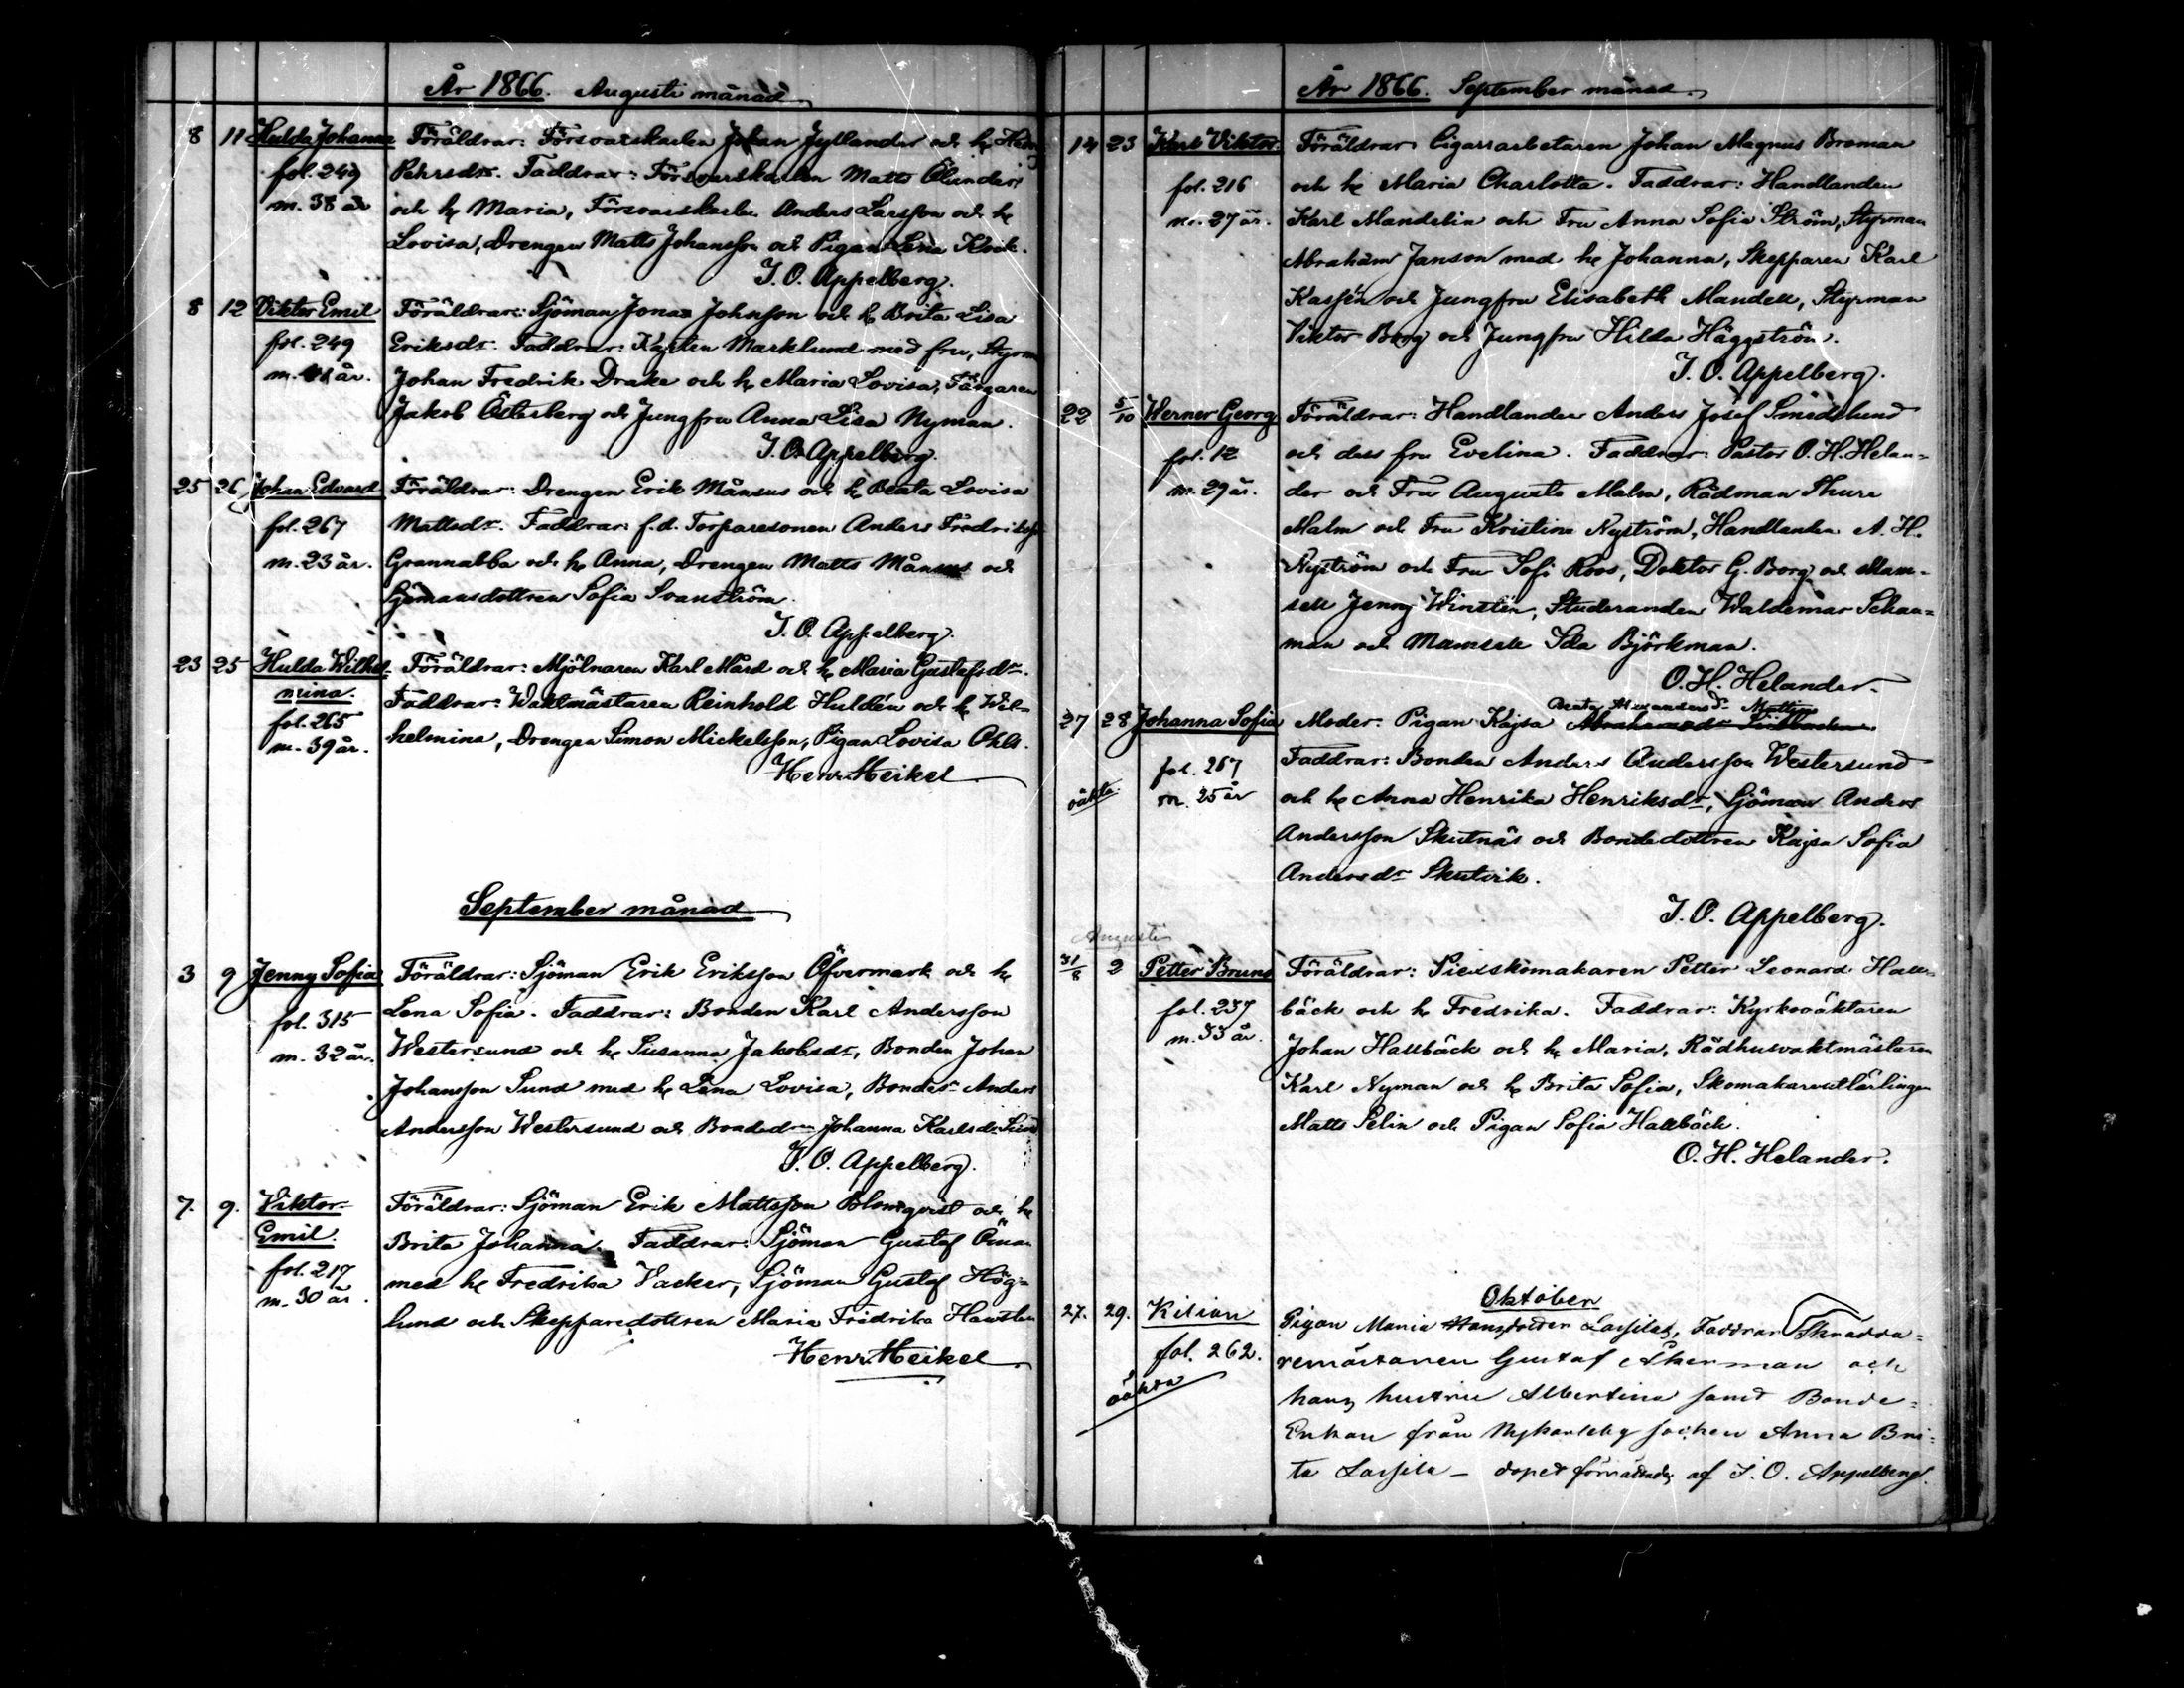 År 1866. Augusti månad
8 11 Hulda Johanna Föräldrar: Försvarskarlen Johan Jyllander och h.
fol. 249 Pehrsdr. Faddrar: Försvarskarlen Matts Ölander
m. 38 år och h. Maria, Försvarskarlen Anders Larsson och h.
Lovisa, Drengen Matts Johansson och Pigan Lena Kock.
J. O. Appelberg.
8 12 Viktor Emil Föräldrar: Sjöman Jonas Johnson och h. Brita Lisa
fol. 249 Eriksdr. Faddrar: Kapten Marklund med fru, Styrm
m. år. Johan Fredrik Drake och h. Maria Lovisa, Färgaren
Jakob Österberg och Jungfru Anna Lisa Nyman.
J. O. Appelberg.
25 26 Johan Edvard Föräldrar: Drengen Erik Månsus och h. Beata Lovisa
fol. 267 Mattsdr. Faddrar: f.d. Torparesonen Anders Fredriksson
m. 23 år. Grannabba och h. Anna, Drengen Matts Månsus och
Sjömansdottren Sofia Svanström.
J. O. Appelberg.
23 25 Hulda Wilhel- Föräldrar: Mjölnaren Karl Mård och h. Maria Gustafsdr.
mina. Faddrar: Waktmästaren Reinhold Huldén och h. Wil-
fol. 265 helmina, Drengen Simon Mickelsson, Pigan Lovisa Ohls.
m. 39 år.
Henr. Heikel
September månad
3 9 Jenny Sofia Föräldrar: Sjöman Erik Eriksson Öfvermark och h.
fol. 315 Lena Sofia. Faddrar: Bonden Karl Andersson
m. 32 år. Westersund och h. Susanna Jakobsdr, Bonden Johan
Johansson Sund med h. Lena Lovisa, Bondes. Anders
Andersson Westersund och Bondedn Johanna Karlsdr Sund
J. O. Appelberg.
7. 9. Viktor Föräldrar: Sjöman Erik Mattsson Blomqvist och h.
Emil. Brita Johanna. Faddrar: Sjöman Gustaf Öman
fol. 217 med h. Fredrika Vacker, Sjöman Gustaf Hög-
m. 30 år. lund och Skepparedottren Maria Fredrika
Henr. Heikel
År 1866. September månad
14 23 Karl Viktor. Föräldrar Cigarrarbetaren Johan Magnus Broman
fol. 216 och h. Maria Charlotta. Faddrar: Handlanden
m. 27 år. Karl Mandelin och Fru Anna Sofia Ström, Styrman
Abraham Janson med h. Johanna, Skepparen Karl
Kassén och Jungfru Elisabeth Mandell, Styrman
Viktor Borg och Jungfru Hilda Häggström.
J. O. Appelberg.
22 5/10 Werner Georg Föräldrar: Handlanden Anders Josef Smedslund
fol. 12 och dess fru Evelina. Faddrar: Pastor O. H. Helan-
m. 29 år. der och Fru Augusta Malm, Rådman Thure
Malm och Fru Kristina Nyström, Handlanden A. H.
Nyström och Fru Sofi Roos, Doktor G. Borg och Mam-
sell Jenny Winstén, Studeranden Waldemar Schau-
man och Mamsell Ida Björkman.
O. H. Helander.
Beata Alexandersdr Mattjus
27 28 Johanna Sofia Moder. Pigan Kajsa Abrahamsdr
fol. 267 Faddrar: Bonden Anders Andersson Westersund
oäkta. m. 25 år och h. Anna Henrika Henriksdr, Sjöman Anders
Andersson Skutnäs och Bondedottren Kajsa Sofia
Andersdr Skutvik.
J. O. Appelberg.
Augusti
31/8 2 Petter Bruno Föräldrar: Pieksskomakaren Petter Leonard Hall-
fol. 237 bäck och h. Fredrika. Faddrar: Kyrkovaktaren
m. 33 år. Johan Hallbäck och h. Maria, Rådhusvaktmästaren
Karl Nyman och h. Brita Sofia, Skomakareutlärlingen
Matts Pelin och Pigan Sofia Hallbäck.
O. H. Helander.
Oktober
27. 29. Kilian Pigan Maria Hansdotter Lassila, Faddrar Skradda-
fol. 262. remästaren Gustaf Åkerman och
oäkta hans hustru Albertina samt Bonde-
Enkan från Nykarleby socken Anna Bri-
ta Lassila - dopet förrättades af J. O. Appelberg.